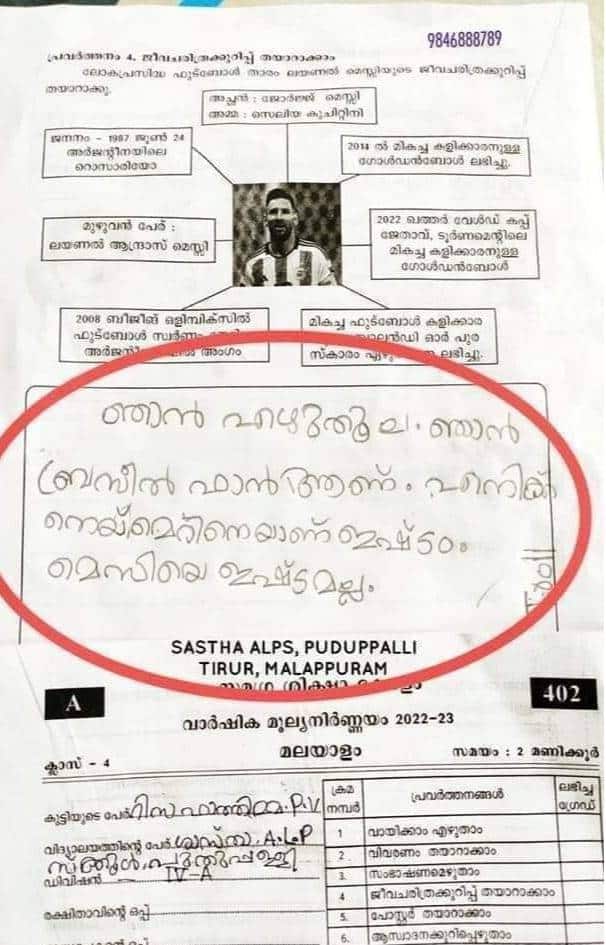 9846888789
പ്രവർത്തനം 4. ജീവചരിത്രക്കുറിപ്പ് തയാറാക്കാം
ലോകപ്രസിദ്ധ ഫുട്ബോൾ താരം ലയണൽ മെസ്സിയുടെ ജീവചരിത്രക്കുറിപ്പ്
തയാറാക്കൂ.
അച്ഛൻ : ജോർജ്ജ് മെസ്സി
അമ്മ : സെലിയ കുചിറ്റിനി
ജനനം - 1987 ജൂൺ 24
അർജന്റീനയിലെ
റൊസാരിയോ
2014 ൽ മികച്ച കളിക്കാരനുള്ള
ഗോൾഡൻബോൾ ലഭിച്ചു.
മുഴുവൻ പേര് :
ലയണൽ ആന്ദ്രാസ് മെസ്സി
2022 ഖത്തർ വേൾഡ് കപ്പ്
ജേതാവ്, ടൂർണമെന്റിലെ
മികച്ച കളിക്കാരനുള്ള
ഗോൾഡൻബോൾ
2008 ബീജിങ് ഒളിമ്പിക്സിൽ
ഫുട്ബോൾ സ്വർണം
അംഗം
മികച്ച ഫുട്ബോൾ കളിക്കാര
ഓർ പുര
സ്കാരം ലഭിച്ചു.
ഞാൻ എഴുതൂല. ഞാൻ
ബ്രസീൽ ഫാൻ ആണ്. എനിക്ക്
നെയ്മറിനെയാണ് ഇഷ്ടം.
മെസിയെ ഇഷ്ടമല്ല.
SASTHA ALPS, PUDUPPALLI
TIRUR, MALAPPURAM
സമഗ്ര ശിക്ഷാ കേരളം
A
402
വാർഷിക മൂല്യനിർണ്ണയം 2022-23
മലയാളം
ക്ലാസ് - 4
സമയം : 2 മണിക്കൂർ
കുട്ടിയുടെ പേര് റിസ ഫാത്തിമ. P.V
വിദ്യാലയത്തിന്റെ പേര് ശാസ്ത. A.L.P
സ്കൂൾ, പുതുപ്പള്ളി
ഡിവിഷൻ IV-A
രക്ഷിതാവിന്റെ ഒപ്പ്
ക്രമ നമ്പർ പ്രവർത്തനങ്ങൾ ലഭിച്ച ഗ്രേഡ്
1 വായിക്കാം എഴുതാം
2. വിവരണം തയാറാക്കാം
3. സംഭാഷണമെഴുതാം
4 ജീവചരിത്രക്കുറിപ്പ് തയാറാക്കാം
5. പോസ്റ്റർ തയാറാക്കാം
6. ആസ്വാദനക്കുറിപ്പെഴുതാം